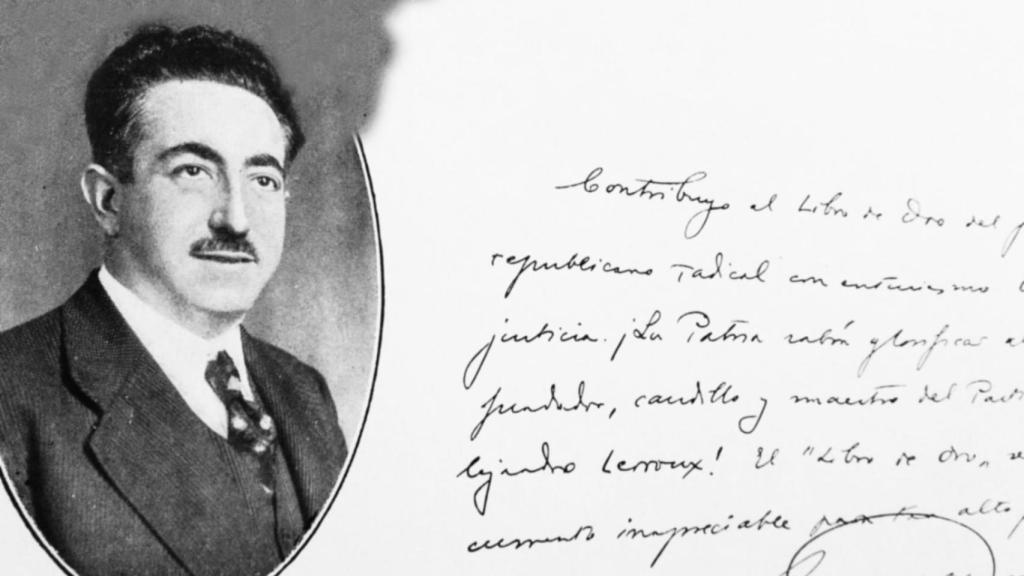 Contribuyo al Libro de Oro del
republicano radical con entusiasmo
justicia. ¡La Patria sabrá glorificar al
fundador, caudillo y maestro del Parti
lejandro Lerroux! El "Libro de Oro"
cumento inapreciable para tan alto